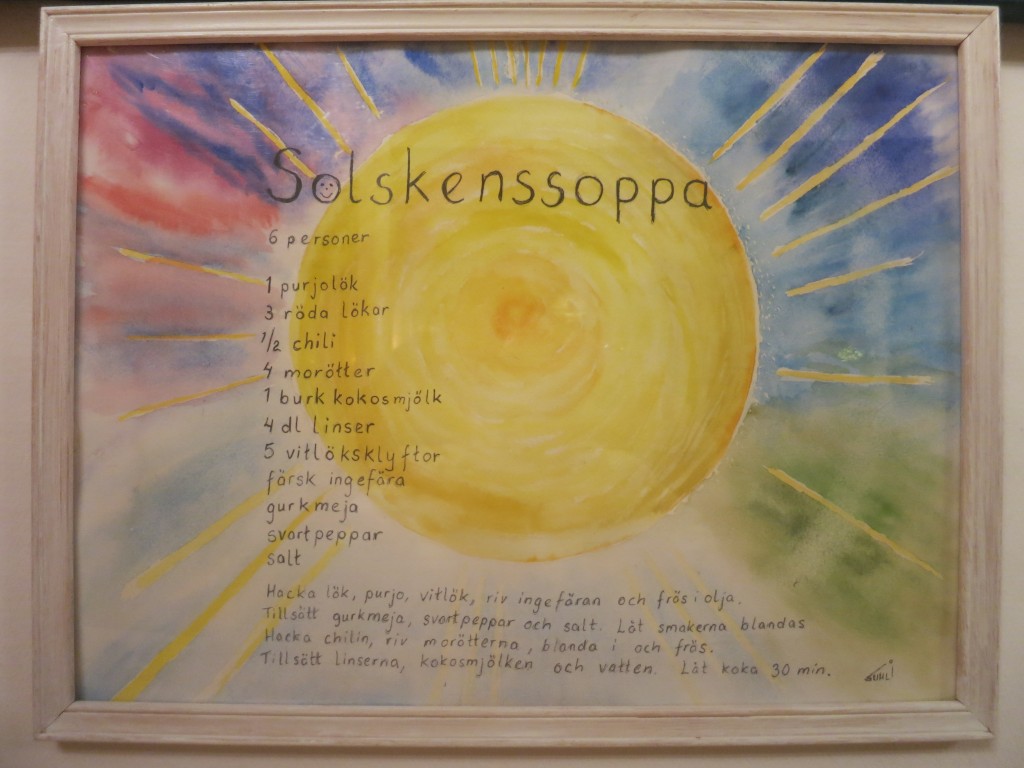 Solskenssoppa
6 personer
1 purjolök
3 röda lökar
1/2 chili
4 morötter
1 burk kokosmjölk
4 dl linser
5 vitlöksklyftor
färsk ingefära
gurkmeja
svartpeppar
salt
Hacka lök, purjo, vitlök, riv ingefäran och fräs i olja.
Tillsätt gurkmeja, svartpeppar och salt. Låt smakerna blandas
Hacka chilin, riv morötterna, blanda i och fräs.
Tillsätt linserna, kokosmjölken och vatten. Låt koka 30 min.